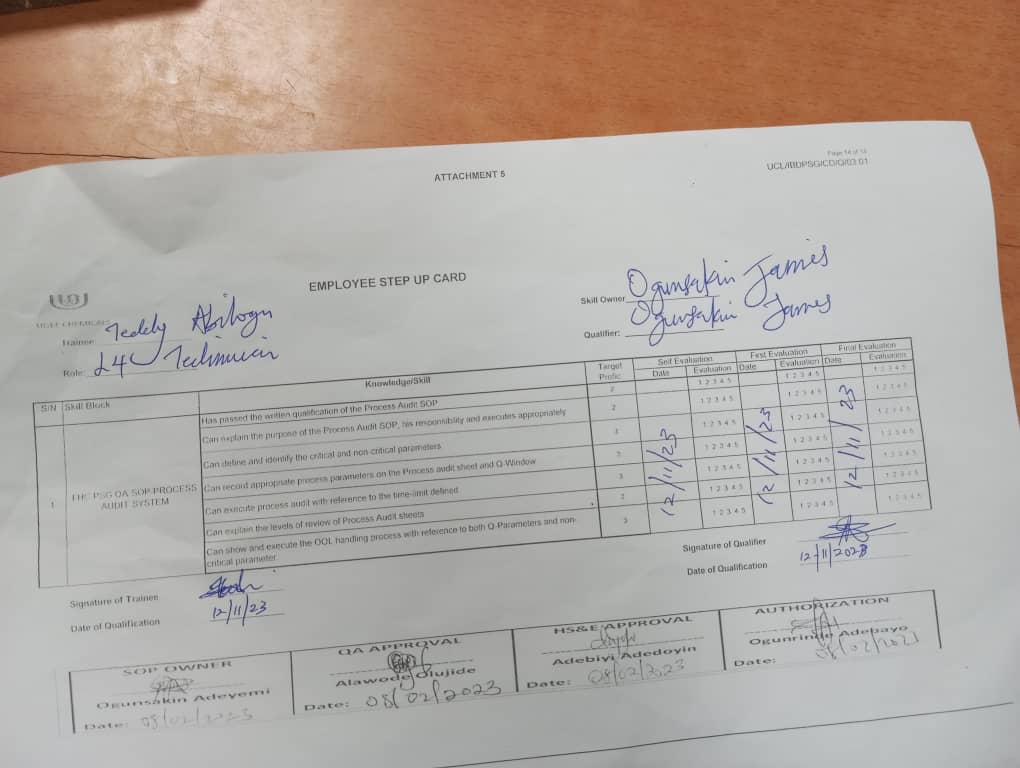 Page 14 of 14
UCL/IBDPSG/CD/Q/03.01
ATTACHMENT 5
EMPLOYEE STEP UP CARD
Skill Owner Ogunsakin James
Qualifier: Ogunsakin James
Trainee Teddy
Role: L4C Technician
S/N Skill Block Knowledge/Skill Target Profic Self Evaluation First Evaluation Final Evaluation
Date Evaluation Date Evaluation Date Evaluation
Has passed the written qualification of the Process Audit SOP 2 1 2 3 4 5 1 2 3 4 5 1 2 3 4 5
Can explain the purpose of the Process Audit SOP, his responsibility and executes appropriately 2 1 2 3 4 5 1 2 3 4 5 1 2 3 4 5
Can define and identify the critical and non-critical parameters 3 1 2 3 4 5 1 2 3 4 5 1 2 3 4 5
Can record appropriate process parameters on the Process audit sheet and Q-Window 3 1 2 3 4 5 1 2 3 4 5 1 2 3 4 5
1 PSG QA SOP-PROCESS AUDIT SYSTEM
Can execute process audit with reference to the time-limit defined 3 1 2 3 4 5 1 2 3 4 5 1 2 3 4 5
Can explain the levels of review of Process Audit sheets 2 1 2 3 4 5 1 2 3 4 5 1 2 3 4 5
Can show and execute the OOL handling process with reference to both Q-Parameters and non-
critical parameter. 3 1 2 3 4 5 1 2 3 4 5 1 2 3 4 5
12/11/23 12/11/23 12/11/23
Signature of Trainee
Date of Qualification 12/11/23
Signature of Qualifier
Date of Qualification 12/11/2023
SOP OWNER
Ogunsakin Adeyemi
Date: 08/02/2023
QA APPROVAL
Alawode Olujide
Date: 08/02/2023
HS&E APPROVAL
Adebiyi Adedoyin
Date: 08/02/2023
AUTHORIZATION
Ogunrinde Adebayo
Date: 08/02/2023